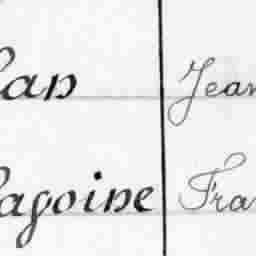 lan Jean
lagoine Fra